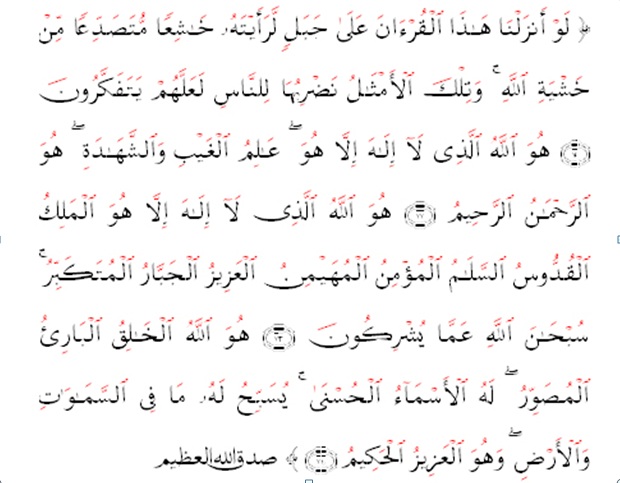 ﴿ لَوْ أَنزَلْنَا هَـٰذَا ٱلْقُرْءَانَ عَلَىٰ جَبَلٍ لَّرَأَيْتَهُۥ خَـٰشِعًا مُّتَصَدِّعًا مِّنْ
خَشْيَةِ ٱللَّهِ ۚ وَتِلْكَ ٱلْأَمْثَـٰلُ نَضْرِبُهَا لِلنَّاسِ لَعَلَّهُمْ يَتَفَكَّرُونَ
هُوَ ٱللَّهُ ٱلَّذِى لَآ إِلَـٰهَ إِلَّا هُوَ ۖ عَـٰلِمُ ٱلْغَيْبِ وَٱلشَّهَـٰدَةِ ۖ هُوَ
ٱلرَّحْمَـٰنُ ٱلرَّحِيمُ هُوَ ٱللَّهُ ٱلَّذِى لَآ إِلَـٰهَ إِلَّا هُوَ ٱلْمَلِكُ
ٱلْقُدُّوسُ ٱلسَّلَـٰمُ ٱلْمُؤْمِنُ ٱلْمُهَيْمِنُ ٱلْعَزِيزُ ٱلْجَبَّارُ ٱلْمُتَكَبِّرُ ۚ
سُبْحَـٰنَ ٱللَّهِ عَمَّا يُشْرِكُونَ هُوَ ٱللَّهُ ٱلْخَـٰلِقُ ٱلْبَارِئُ
ٱلْمُصَوِّرُ ۖ لَهُ ٱلْأَسْمَآءُ ٱلْحُسْنَىٰ ۚ يُسَبِّحُ لَهُۥ مَا فِى ٱلسَّمَـٰوَٰتِ
وَٱلْأَرْضِ ۖ وَهُوَ ٱلْعَزِيزُ ٱلْحَكِيمُ ﴾ صدق الله العظيم